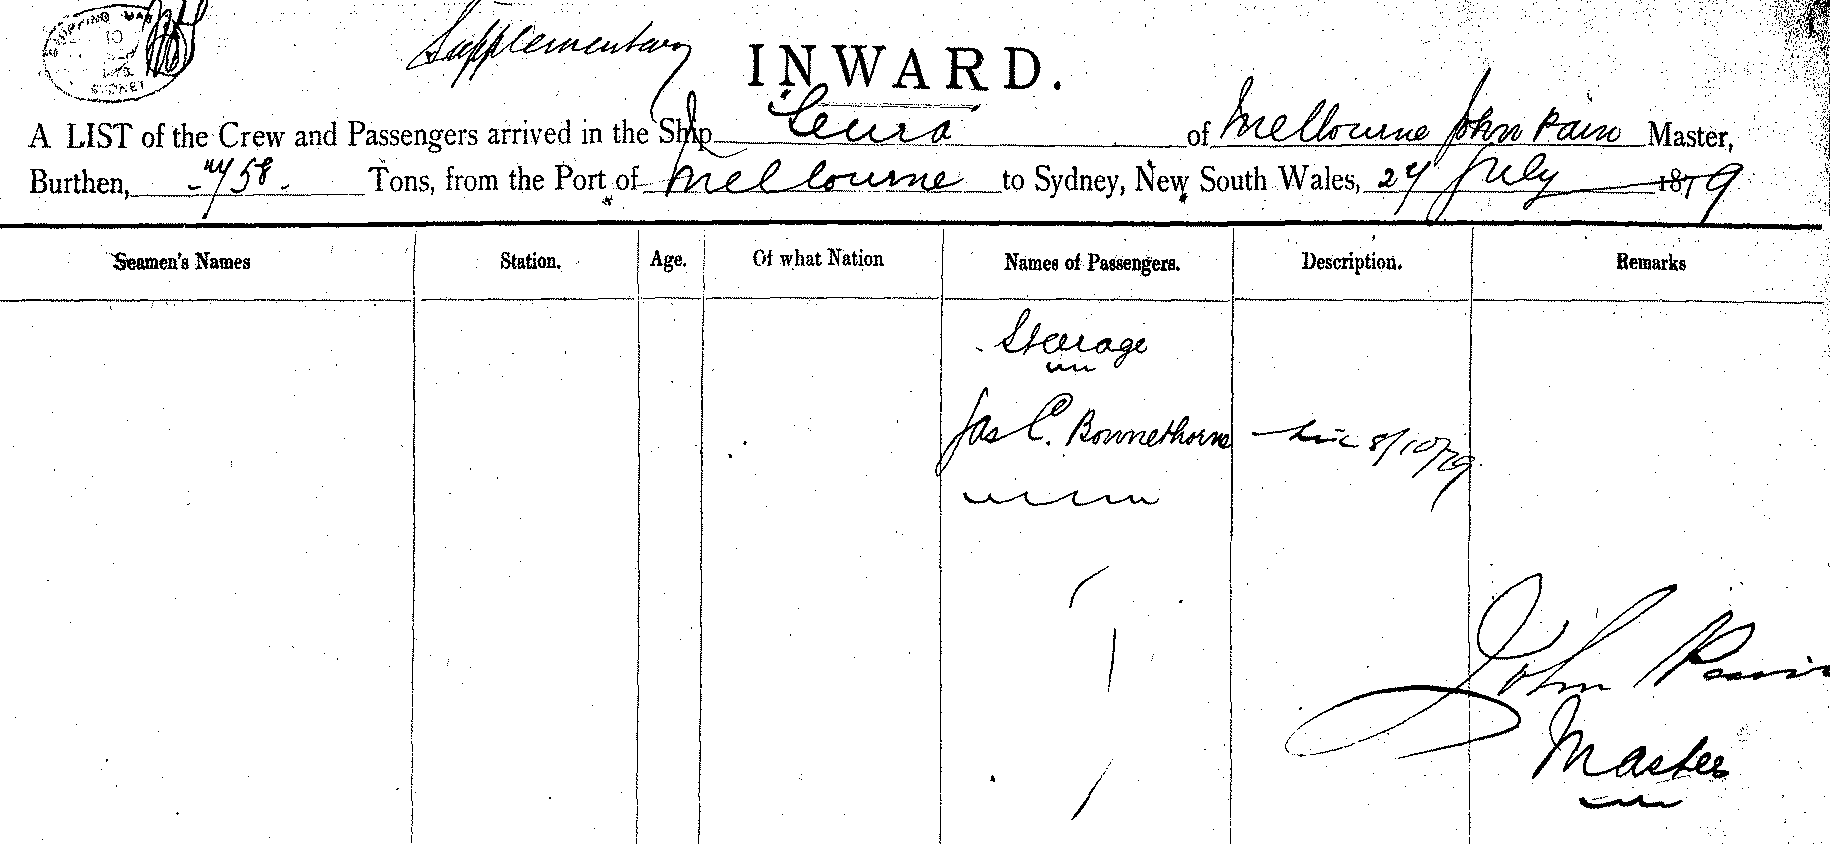 SHIPPING MAS
SYDNEY
Supplementary
INWARD.
A LIST of the Crew and Passengers arrived in the Ship Leura of Melbourne John Pain Master,
Burthen, 758 Tons, from the Port of Melbourne to Sydney, New South Wales, 24 July 1879
Seamen's Names Station. Age. Of what Nation Names of Passengers. Description. Remarks
Stearage
Jas C. Bonnethorne 8/10/79
John Pain
Master